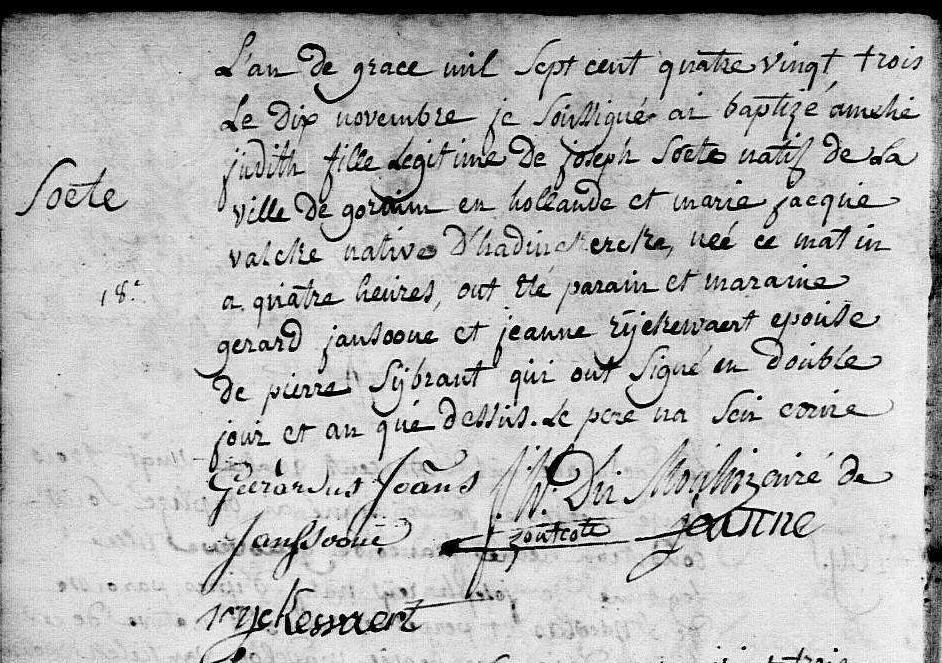 L'an de grace mil sept cent quatre vingt trois
Le dix novembre je soussigné ai baptizé amelie
judith fille Legitime de joseph Soete natif de La
Soete
ville de gorcum en hollande et marie jacque
valcke native D'hadinckercke, neé ce matin
18.e
a quatre heures, ont été parain et maraine
gerard janssoone et jeanne rijckewaert epouse
de pierre Sijbrant qui ont signé en double
jour et an que dessus. Le pere na sceu ecrire
Gerardus Joans
Janssoone
P. W. Du Moulin curé de
zoutcote
jeanne
rryckewaert